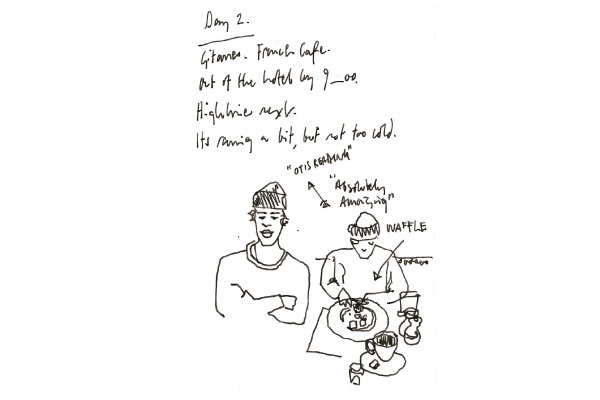 Day 2.
Gitanes. French Cafe.
Out of the hotel by 9_00.
Highline next.
Its raining a bit, but not too cold.
"OTIS READING"
"Absolutely
Amazing"
WAFFLE